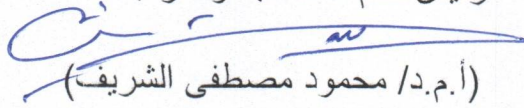 (أ.م.د/ محمود مصطفى الشريف)